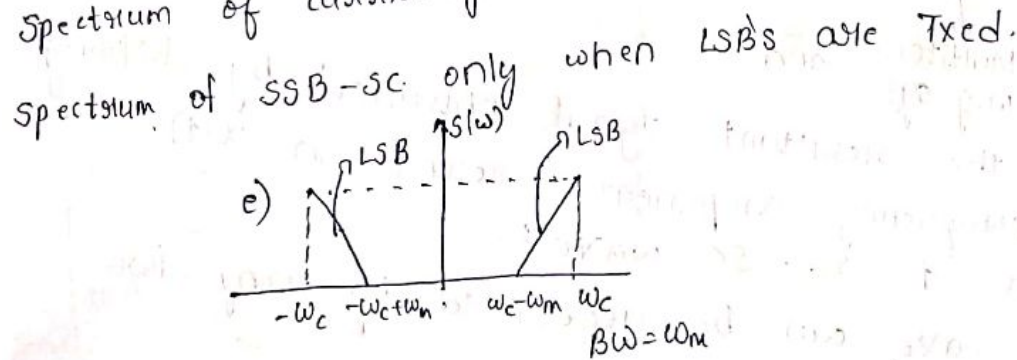 Spectrum of
Spectrum of SSB-SC only when LSB's are Txed.
S(ω)
LSB
LSB
e)
-ωc -ωc+ωm ωc-ωm ωc
BW = ωm